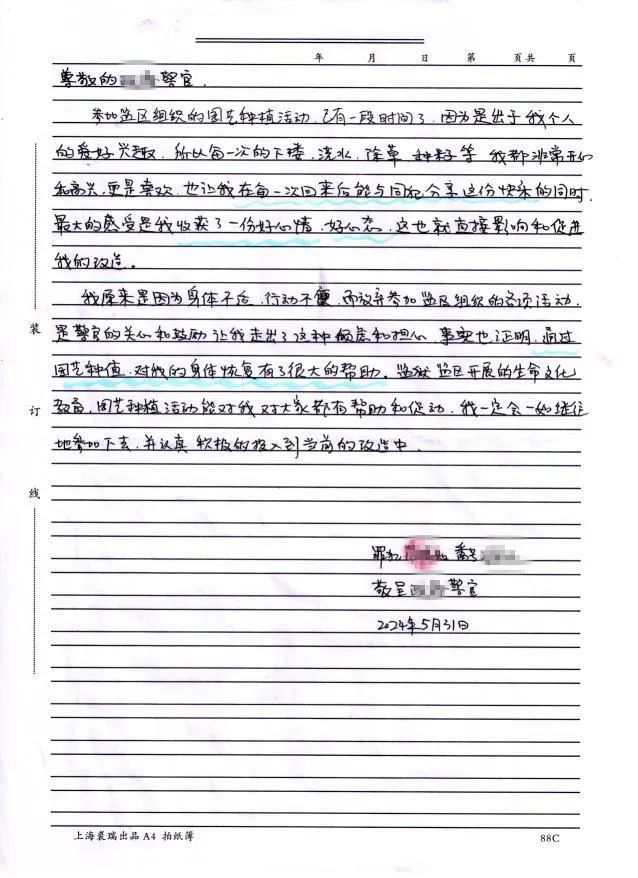 年 月 日 第 页共 页
尊敬的 警官,
参加监区组织的园艺种植活动,已有一段时间了,因为是出于我个人
的爱好兴趣,所以每一次的下楼,浇水,除草,种籽等,我都非常开心
和高兴,更是喜欢,也让我在每一次回来后能与同犯分享这份快乐的同时,
最大的感受是我收获了一份好心情,好心态,这也就直接影响和促进
我的改造。
我原来是因为身体不适,行动不便,而放弃参加监区组织的各项活动,
是警官的关心和鼓励让我走出了这种顾虑和担心,事实也证明,通过
园艺种值,对我的身体恢复有了很大的帮助。监狱监区开展的生命文化
教育,园艺种植活动能对我对大家都有帮助和促动,我一定会一如继往
地参加下去,并认真积极的投入到当前的改造中.
罪犯 番号
敬呈 警官
2024年5月31日
装
订
线
上海裘瑞出品 A4 拍纸簿 88C